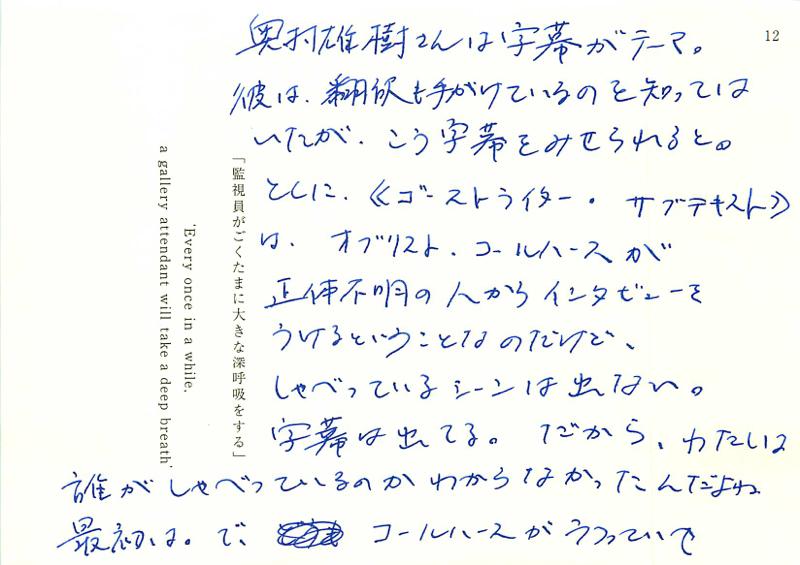 12
奥村雄樹さんは字幕がテーマ。
彼は、翻訳も手がけているのを知っては
いたが、こう字幕をみせられると。
とくに、《ゴーストライター・サブテキスト》
は、オブリスト、コールハースが
正体不明の人からインタビューを
うけるということなのだけど、
しゃべっているシーンは出ない。
字幕は出てる。だから、わたしは
誰がしゃべっているのかわからなかったんだよね
最初は。で、コールハースがうつっていて
「監視員がごくたまに大きな深呼吸をする」
'Every once in a while.
a gallery attendant will take a deep breath'